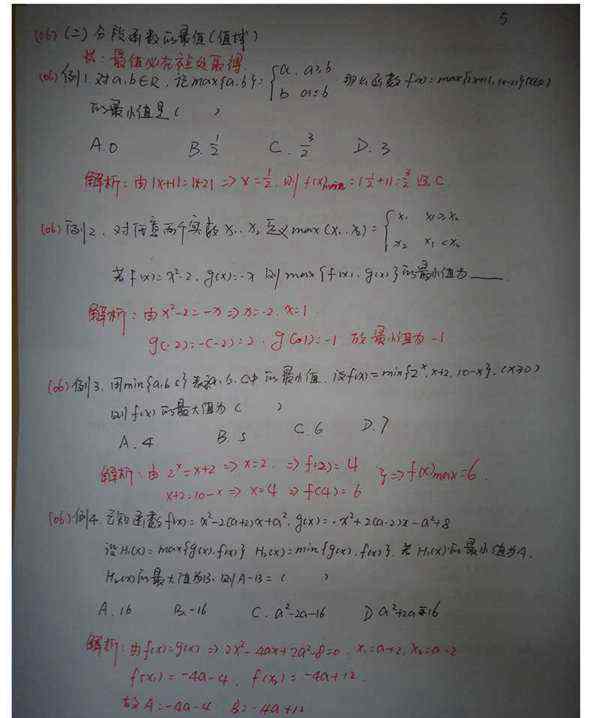 5
(06) (二) 分段函数的最值(值域)
最值必在拐点取得
(06) 例1. 对a,b∈R, 记max{a,b}={a, a≥b
b a≤b 那么函数 f(x)=max{|x+1|, |x-2|}(x∈R)
的最小值是 ( )
A. 0 B. 1/2 C. 3/2 D. 3
解析: 由|x+1|=|x-2| => x=1/2, 则 f(x)min=|1/2+1|=3/2 选 C
(06) 例2. 对任意两个实数 x₁, x₂ 定义max(x₁, x₂)={x₁ x₁≥x₂
x₂ x₁<x₂
若f(x)=x²-2, g(x)=-x 则max{f(x), g(x)}的最小值为____
解析: 由 x²-2=-x => x=-2, x=1
g(-2)=-(-2)=2, g(1)=-1 故最小值为 -1
(06) 例3. 用min{a,b,c}表示a,b,c中的最小值, 设f(x)=min{2ˣ, x+2, 10-x}, (x≥0)
则f(x)的最大值为 ( )
A. 4 B. 5 C. 6 D. 7
解析: 由 2ˣ=x+2 => x=2 => f(2)=4
x+2=10-x => x=4 => f(4)=6 } => f(x)max=6
(06) 例4. 已知函数f(x)=x²-2(a+2)x+a², g(x)=-x²+2(a-2)x-a²+8
设H₁(x)=max{g(x), f(x)} H₂(x)=min{g(x), f(x)}, 若H₁(x)的最小值为A,
H₂(x)的最大值为B, 则A-B=( )
A. 16 B. -16 C. a²-2a-16 D a²+2a-16
解析: 由f(x)=g(x) => 2x²-4ax+2a²-8=0, x₁=a+2, x₂=a-2
f(x₁)=-4a-4, f(x₂)=-4a+12
故A=-4a-4 B=-4a+12